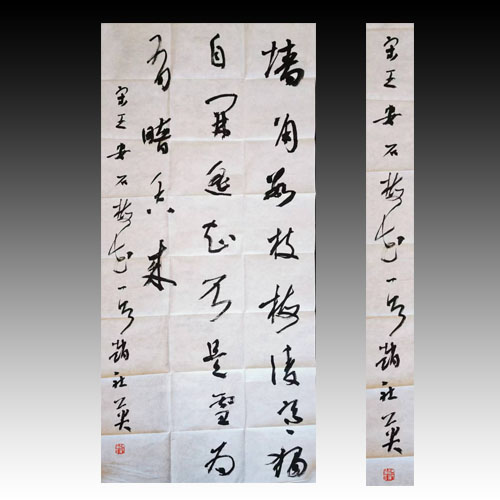 墙角数枝梅凌寒獨
自開遥知不是雪为
有暗香来
宋王安石梅花一首趙社英
宋王安石梅花一首趙社英